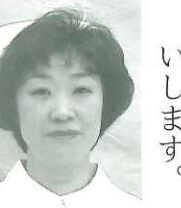 いします。